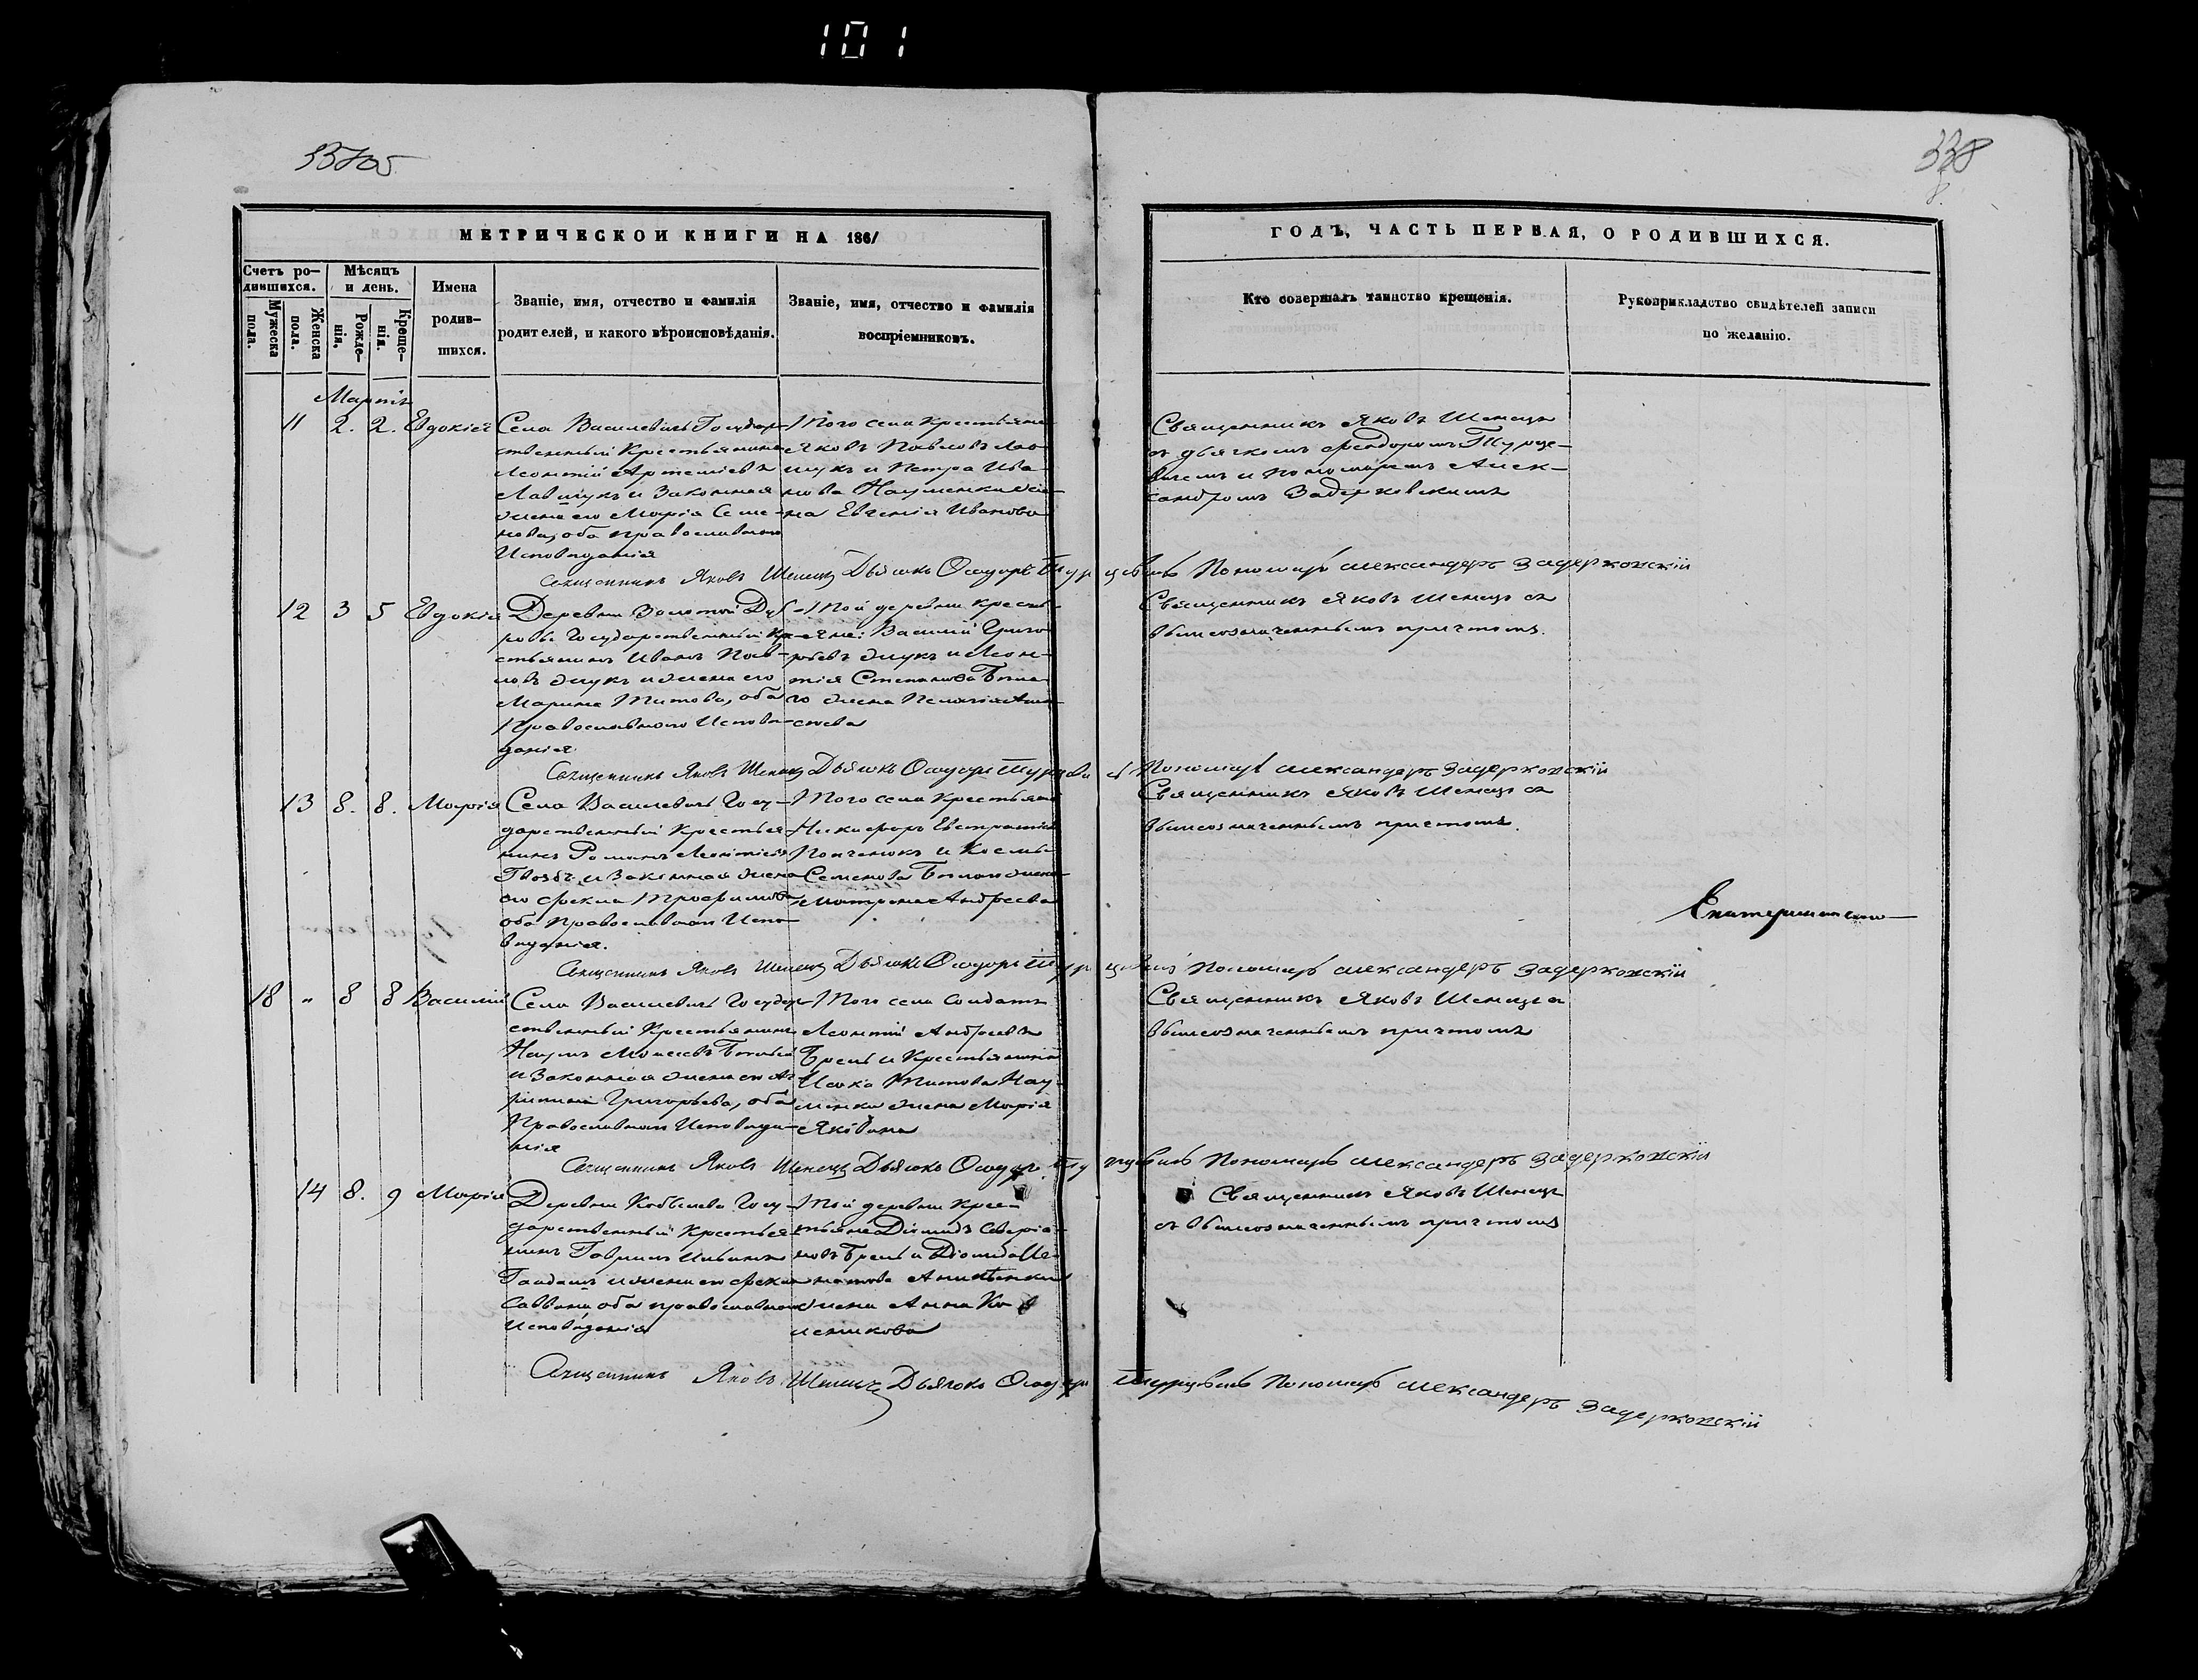 101
338
МЕТРИЧЕСКОЙ КНИГИ НА 1861
ГОДЪ, ЧАСТЬ ПЕРВАЯ, О РОДИВШИХСЯ.
Счетъ ро-
дившихся.
Мужеска
пола.
Женска
пола.
Мѣсяцъ
и день.
Рожде-
нія.
Креще-
нія.
Имена
родив-
шихся.
Званіе, имя, отчество и фамилія
родителей, и какого вѣроисповѣданія.
Званіе, имя, отчество и фамилія
воспріемниковъ.
Кто совершалъ таинство крещенія.
Рукоприкладство свидѣтелей записи
по желанію.
Мартъ
11 2. 2. Евдокія
Села Василевичъ Государ-
ственный Крестьянинъ
Леонтій Артеміевъ
и Законная
жена его Марія Семе-
нова, оба православнаго
Исповѣданія
Того села Крестьяне
Яковъ Павловъ
и Петра Ива-
нова Науменки же-
на Евгенія Иванова
Священникъ Яковъ Шенецъ
съ дьячкомъ Феодоромъ Турце-
вичемъ и пономаремъ Алек-
сандромъ Задерковскимъ
Священникъ Яковъ Шенецъ Дьячокъ Ѳеодоръ Турцевичъ Пономарь Александеръ Задерковскій
12 3 5 Евдокія
Деревни Золотой Дуб-
ровы Государственный Кре-
стьянинъ Иванъ Пав-
ловъ Жукъ и жена его
Марина Титова, оба
Православнаго Исповѣ-
данія
Той деревни кресть-
яне: Василій Григо-
рьевъ Жукъ и Леон-
тія Степанова
жена Пелагія
Священникъ Яковъ Шенецъ съ
вышеозначеннымъ причтомъ.
Священникъ Яковъ Шенецъ Дьячокъ Ѳеодоръ Турцевичъ Пономарь Александеръ Задерковскій
13 8. 8. Марія
Села Василевичъ Госу-
дарственный Крестья-
нинъ Романъ Леонтіевъ
Гвоздь и Законная жена
его Фекла Трофимова
оба православнаго Испо-
вѣданія.
Того села Крестьяне
Никифоръ Евстратіевъ
и Космы
Семенова жена
Матрона Андреева
Священникъ Яковъ Шенецъ съ
вышеозначеннымъ причтомъ.
Священникъ Яковъ Шенецъ Дьячокъ Ѳеодоръ Турцевичъ Пономарь Александеръ Задерковскій
18 " 8 8 Василій
Села Василевичъ Государ-
ственный Крестьянинъ
Наумъ Моисеевъ
и Законная жена его
Григорьева, оба
Православнаго Исповѣда-
нія
Того села Солдатъ
Леонтій Андреевъ
и Крестьянина
Титова Нау-
менки жена Марія
Яковлева
Священникъ Яковъ Шенецъ съ
вышеозначеннымъ причтомъ
Священникъ Яковъ Шенецъ Дьячокъ Ѳеодоръ Турцевичъ Пономарь Александеръ Задерковскій
14 8. 9 Марія
Деревни Кобылева Госу-
дарственный Крестья-
нинъ Гавріилъ Ильинъ
и жена его Фекла
оба православнаго
Исповѣданія
Той деревни Крес-
тьяне Діомидъ
и Діомида
жена Анна
Священникъ Яковъ Шенецъ
съ вышеозначеннымъ причтомъ
Священникъ Яковъ Шенецъ Дьячокъ Ѳеодоръ Турцевичъ Пономарь Александеръ Задерковскій